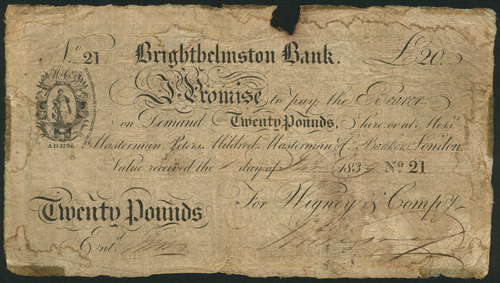 No. 21 Brighthelmston Bank. £20.
I Promise to pay the Bearer
on Demand Twenty Pounds, here or at Messrs.
Masterman, Peters, Mildred, Masterman & Co. Bankers London.
Value received the day of 183 No 21
For Wigney & Compy.
Twenty Pounds
Entd.
A.D. 1796